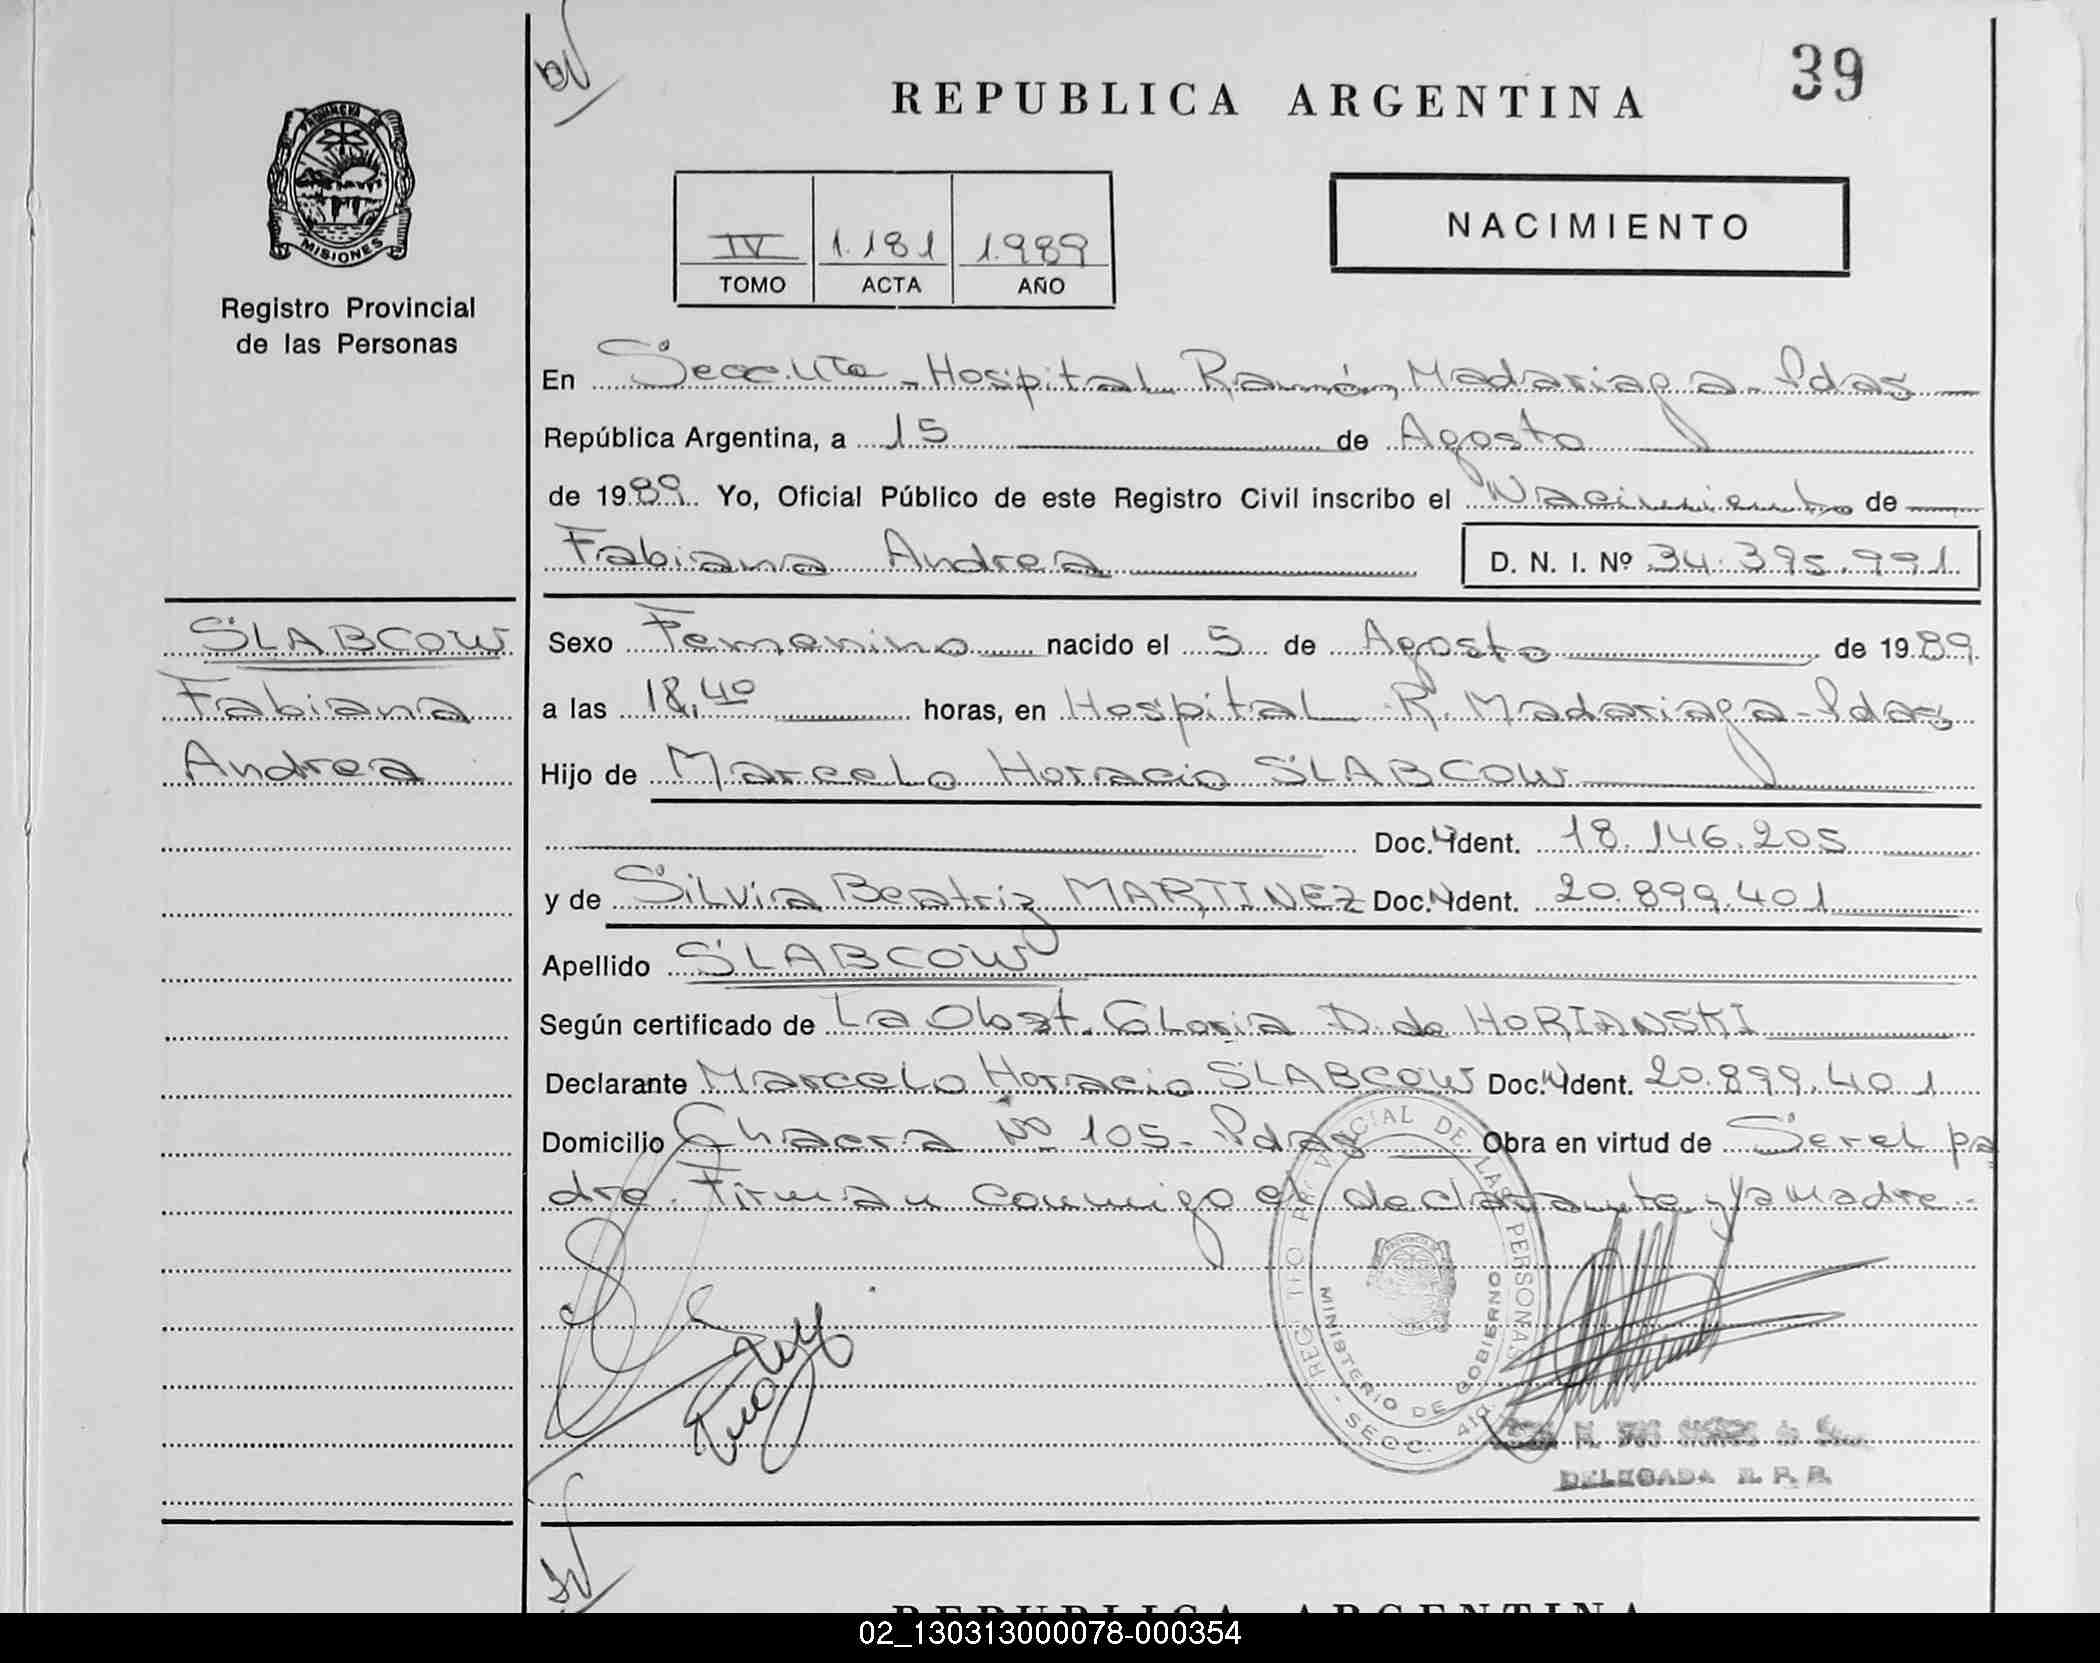 39
REPUBLICA ARGENTINA
PROVINCIA DE
MISIONES
Registro Provincial
de las Personas
IV 1.181 1.989
TOMO ACTA AÑO
NACIMIENTO
En Secc. 4ta - Hospital Ramón Madariaga - Pdas
República Argentina, a 15 de Agosto
de 1989. Yo, Oficial Público de este Registro Civil inscribo el Nacimiento de
Fabiana Andrea D. N. I. Nº 34.395.991
SLABCOW
Fabiana
Andrea
Sexo Femenino nacido el 5 de Agosto de 1989
a las 18,40 horas, en Hospital R. Madariaga - Pdas
Hijo de Marcelo Horacio SLABCOW
Doc. Ident. 18.146.205
y de Silvia Beatriz MARTINEZ Doc. Ident. 20.899.401
Apellido SLABCOW
Según certificado de La Obst. Gloria D. de HORIANSKI
Declarante Marcelo Horacio SLABCOW Doc. Ident. 20.899.401
Domicilio Chacra Nº 105 - Pdas Obra en virtud de Ser el pa
dre. Firman conmigo el declarante y la madre.-
REGISTRO PROVINCIAL DE LAS PERSONAS
MINISTERIO DE GOBIERNO
- SECC. 4ta.
DELEGADA R. P. P.
REPUBLICA ARGENTINA
02_130313000078-000354